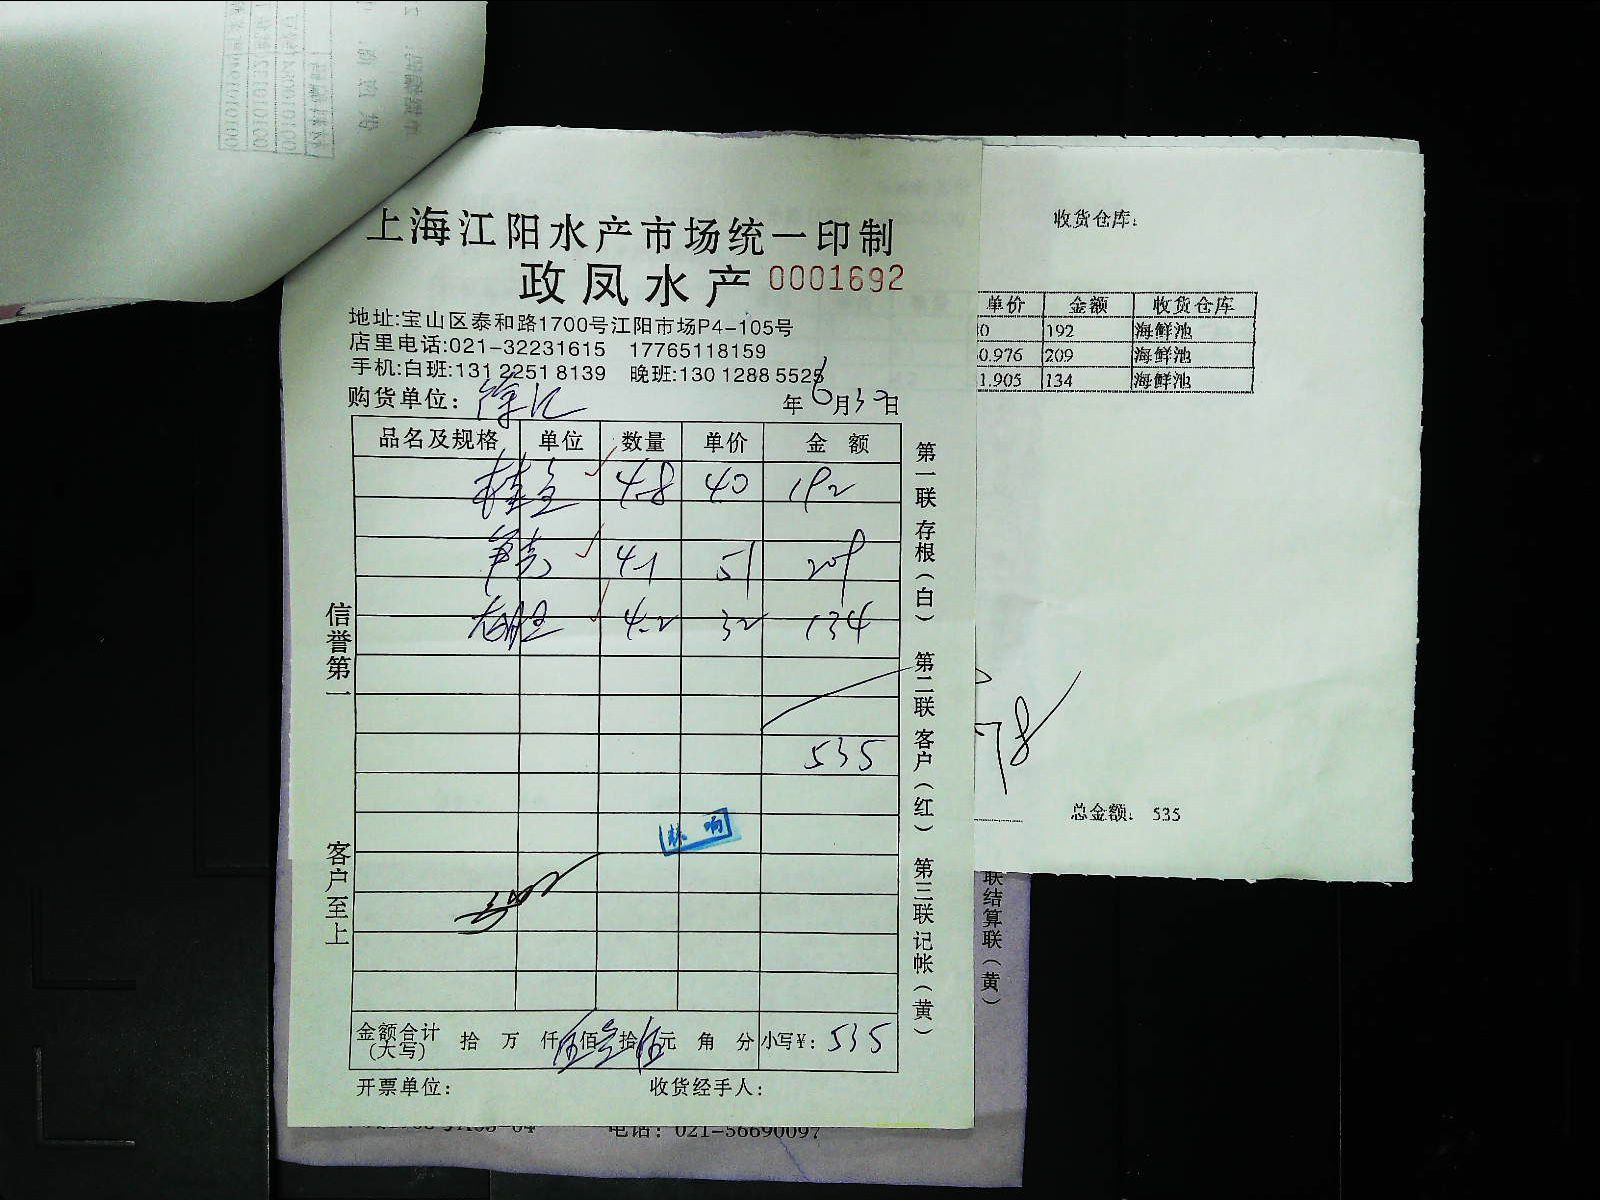 上海江阳水产市场统一印制
政凤水产 0001692
地址:宝山区泰和路1700号江阳市场P4-105号
店里电话:021-32231615 17765118159
手机:白班:131 2251 8139 晚班:130 1288 5525
购货单位: 徐汇 年6月30日
品名及规格 单位 数量 单价 金 额
4.8 40 192
4.1 51 209
4.2 32 134
535
金额合计(大写) 拾 万 仟伍佰叁拾伍元 角 分 小写¥: 535
开票单位: 收货经手人:
信誉第一 客户至上
第一联存根(白) 第二联客户(红) 第三联记帐(黄)
收货仓库:
单价 金额 收货仓库
192 海鲜池
0.976 209 海鲜池
1.905 134 海鲜池
总金额: 535
联结算联(黄)
电话: 021-56690097